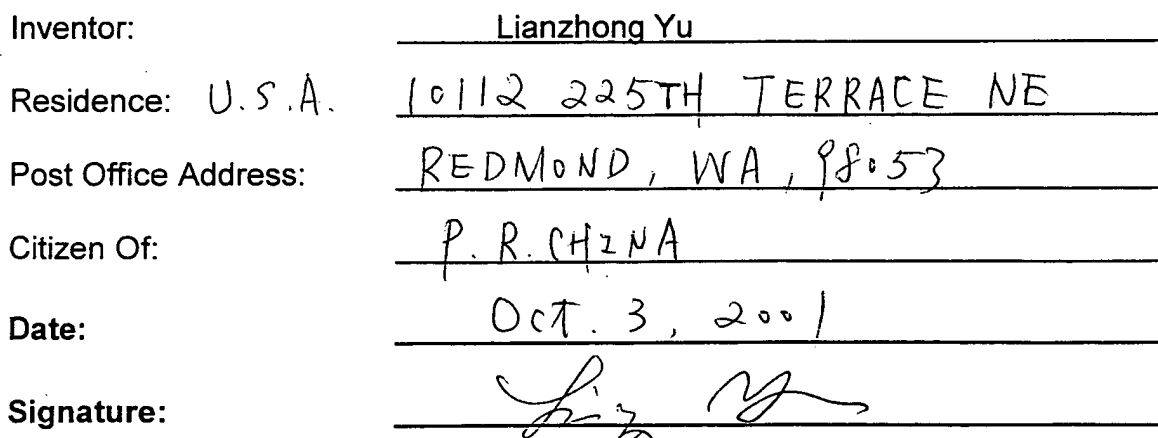 Inventor: Lianzhong Yu
Residence: U.S.A. 10112 225TH TERRACE NE
Post Office Address: REDMOND, WA, 98053
Citizen Of: P.R. CHINA
Date: Oct. 3, 2001
Signature: